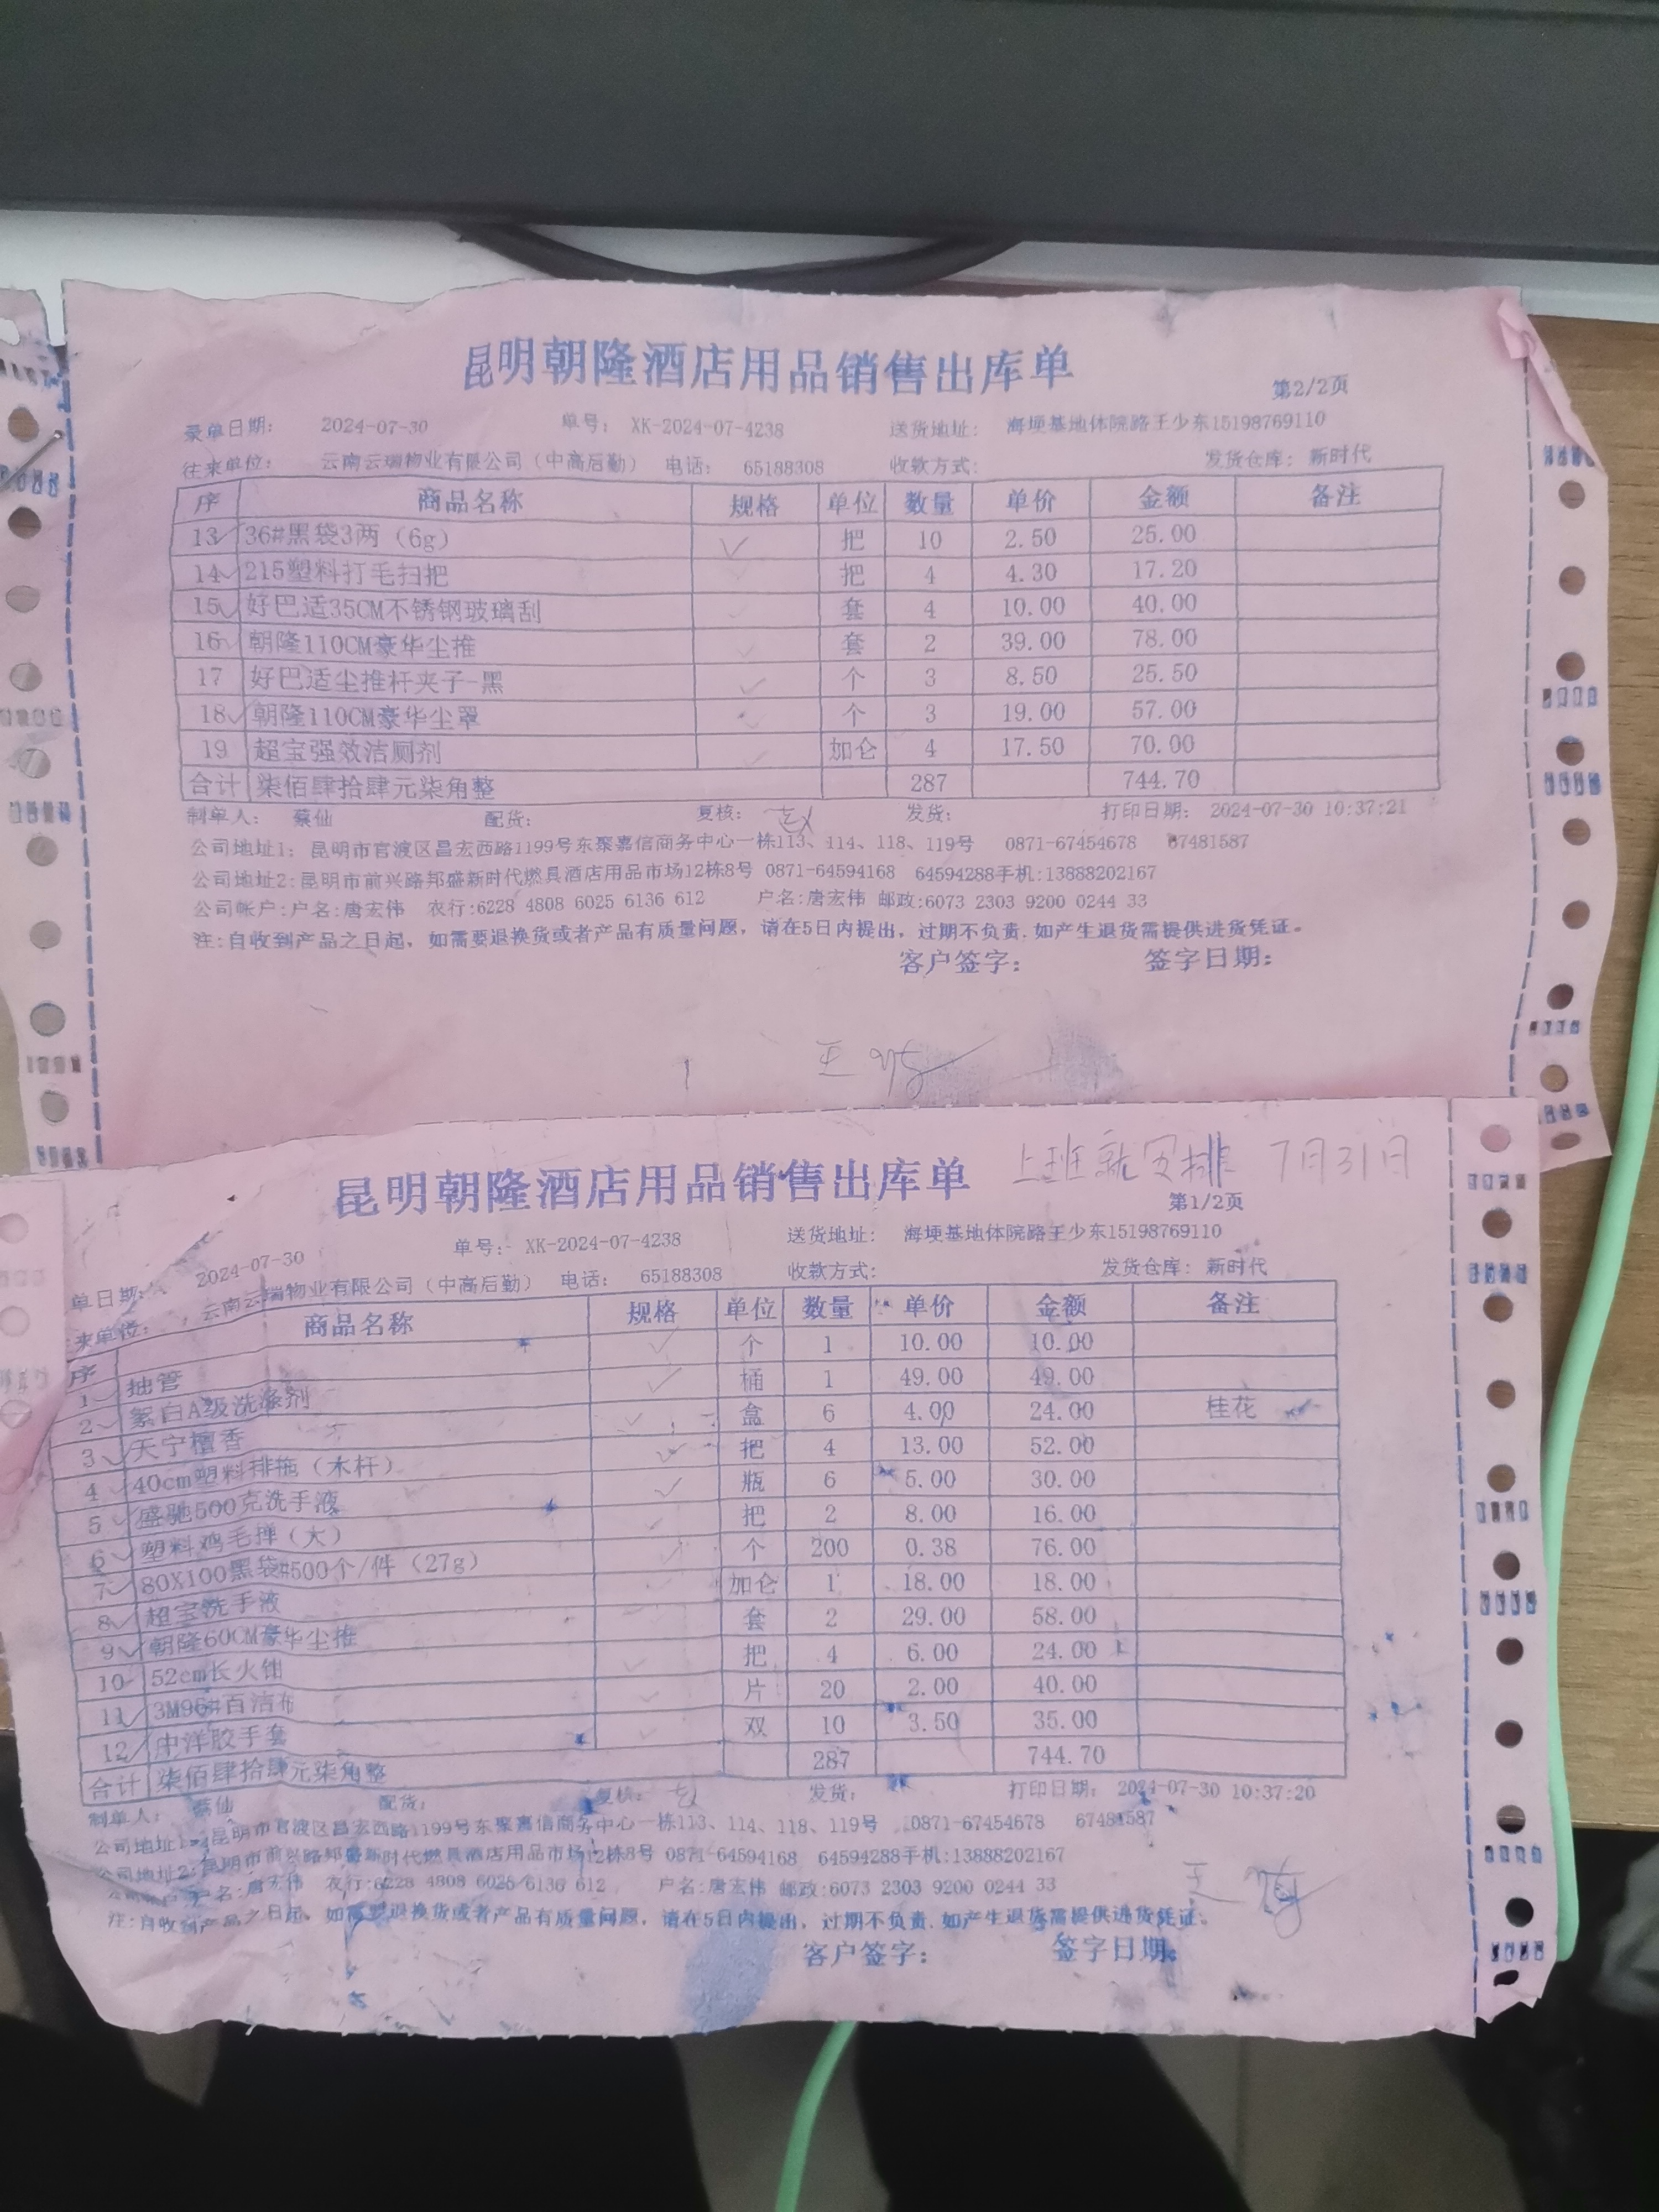 昆明朝隆酒店用品销售出库单
第2/2页
录单日期: 2024-07-30 单号: XK-2024-07-4238 送货地址: 海埂基地体院路王少东15198769110
往来单位: 云南云瑞物业有限公司（中高后勤） 电话: 65188308 收款方式: 发货仓库: 新时代
序 商品名称 规格 单位 数量 单价 金额 备注
13 36#黑袋3两（6g） 把 10 2.50 25.00
14 215塑料打毛扫把 把 4 4.30 17.20
15 好巴适35CM不锈钢玻璃刮 套 4 10.00 40.00
16 朝隆110CM豪华尘推 套 2 39.00 78.00
17 好巴适尘推杆夹子-黑 个 3 8.50 25.50
18 朝隆110CM豪华尘罩 个 3 19.00 57.00
19 超宝强效洁厕剂 加仑 4 17.50 70.00
合计 柒佰肆拾肆元柒角整 287 744.70
制单人: 蔡仙 配货: 复核: 发货: 打印日期: 2024-07-30 10:37:21
公司地址1: 昆明市官渡区昌宏西路1199号东聚嘉信商务中心一栋113、114、118、119号 0871-67454678 67481587
公司地址2:昆明市前兴路邦盛新时代燃具酒店用品市场12栋8号 0871-64594168 64594288手机:13888202167
公司帐户:户名:唐宏伟 农行:6228 4808 6025 6136 612 户名:唐宏伟 邮政:6073 2303 9200 0244 33
注:自收到产品之日起，如需要退换货或者产品有质量问题，请在5日内提出，过期不负责.如产生退货需提供进货凭证。
客户签字: 签字日期:
王
上班就安排 7月31日
昆明朝隆酒店用品销售出库单
第1/2页
单日期: 2024-07-30 单号: XK-2024-07-4238 送货地址: 海埂基地体院路王少东15198769110
来单位: 云南云瑞物业有限公司（中高后勤） 电话: 65188308 收款方式: 发货仓库: 新时代
序 商品名称 规格 单位 数量 单价 金额 备注
1 抽管 个 1 10.00 10.00
2 絮白A级洗涤剂 桶 1 49.00 49.00
3 天宁檀香 盒 6 4.00 24.00 桂花
4 40cm塑料排拖（木杆） 把 4 13.00 52.00
5 盛驰500克洗手液 瓶 6 5.00 30.00
6 塑料鸡毛掸（大） 把 2 8.00 16.00
7 80X100黑袋#500个/件（27g） 个 200 0.38 76.00
8 超宝洗手液 加仑 1 18.00 18.00
9 朝隆60CM豪华尘推 套 2 29.00 58.00
10 52cm长火钳 把 4 6.00 24.00
11 3M96#百洁布 片 20 2.00 40.00
12 中洋胶手套 双 10 3.50 35.00
合计 柒佰肆拾肆元柒角整 287 744.70
制单人: 蔡仙 配货: 复核: 发货: 打印日期: 2024-07-30 10:37:20
公司地址1: 昆明市官渡区昌宏西路1199号东聚嘉信商务中心一栋113、114、118、119号 0871-67454678 67481587
公司地址2:昆明市前兴路邦盛新时代燃具酒店用品市场12栋8号 0871-64594168 64594288手机:13888202167
户名:唐宏伟 农行:6228 4808 6025 6136 612 户名:唐宏伟 邮政:6073 2303 9200 0244 33
注:自收到产品之日起，如需要退换货或者产品有质量问题，请在5日内提出，过期不负责.如产生退货需提供进货凭证。
王
客户签字: 签字日期: